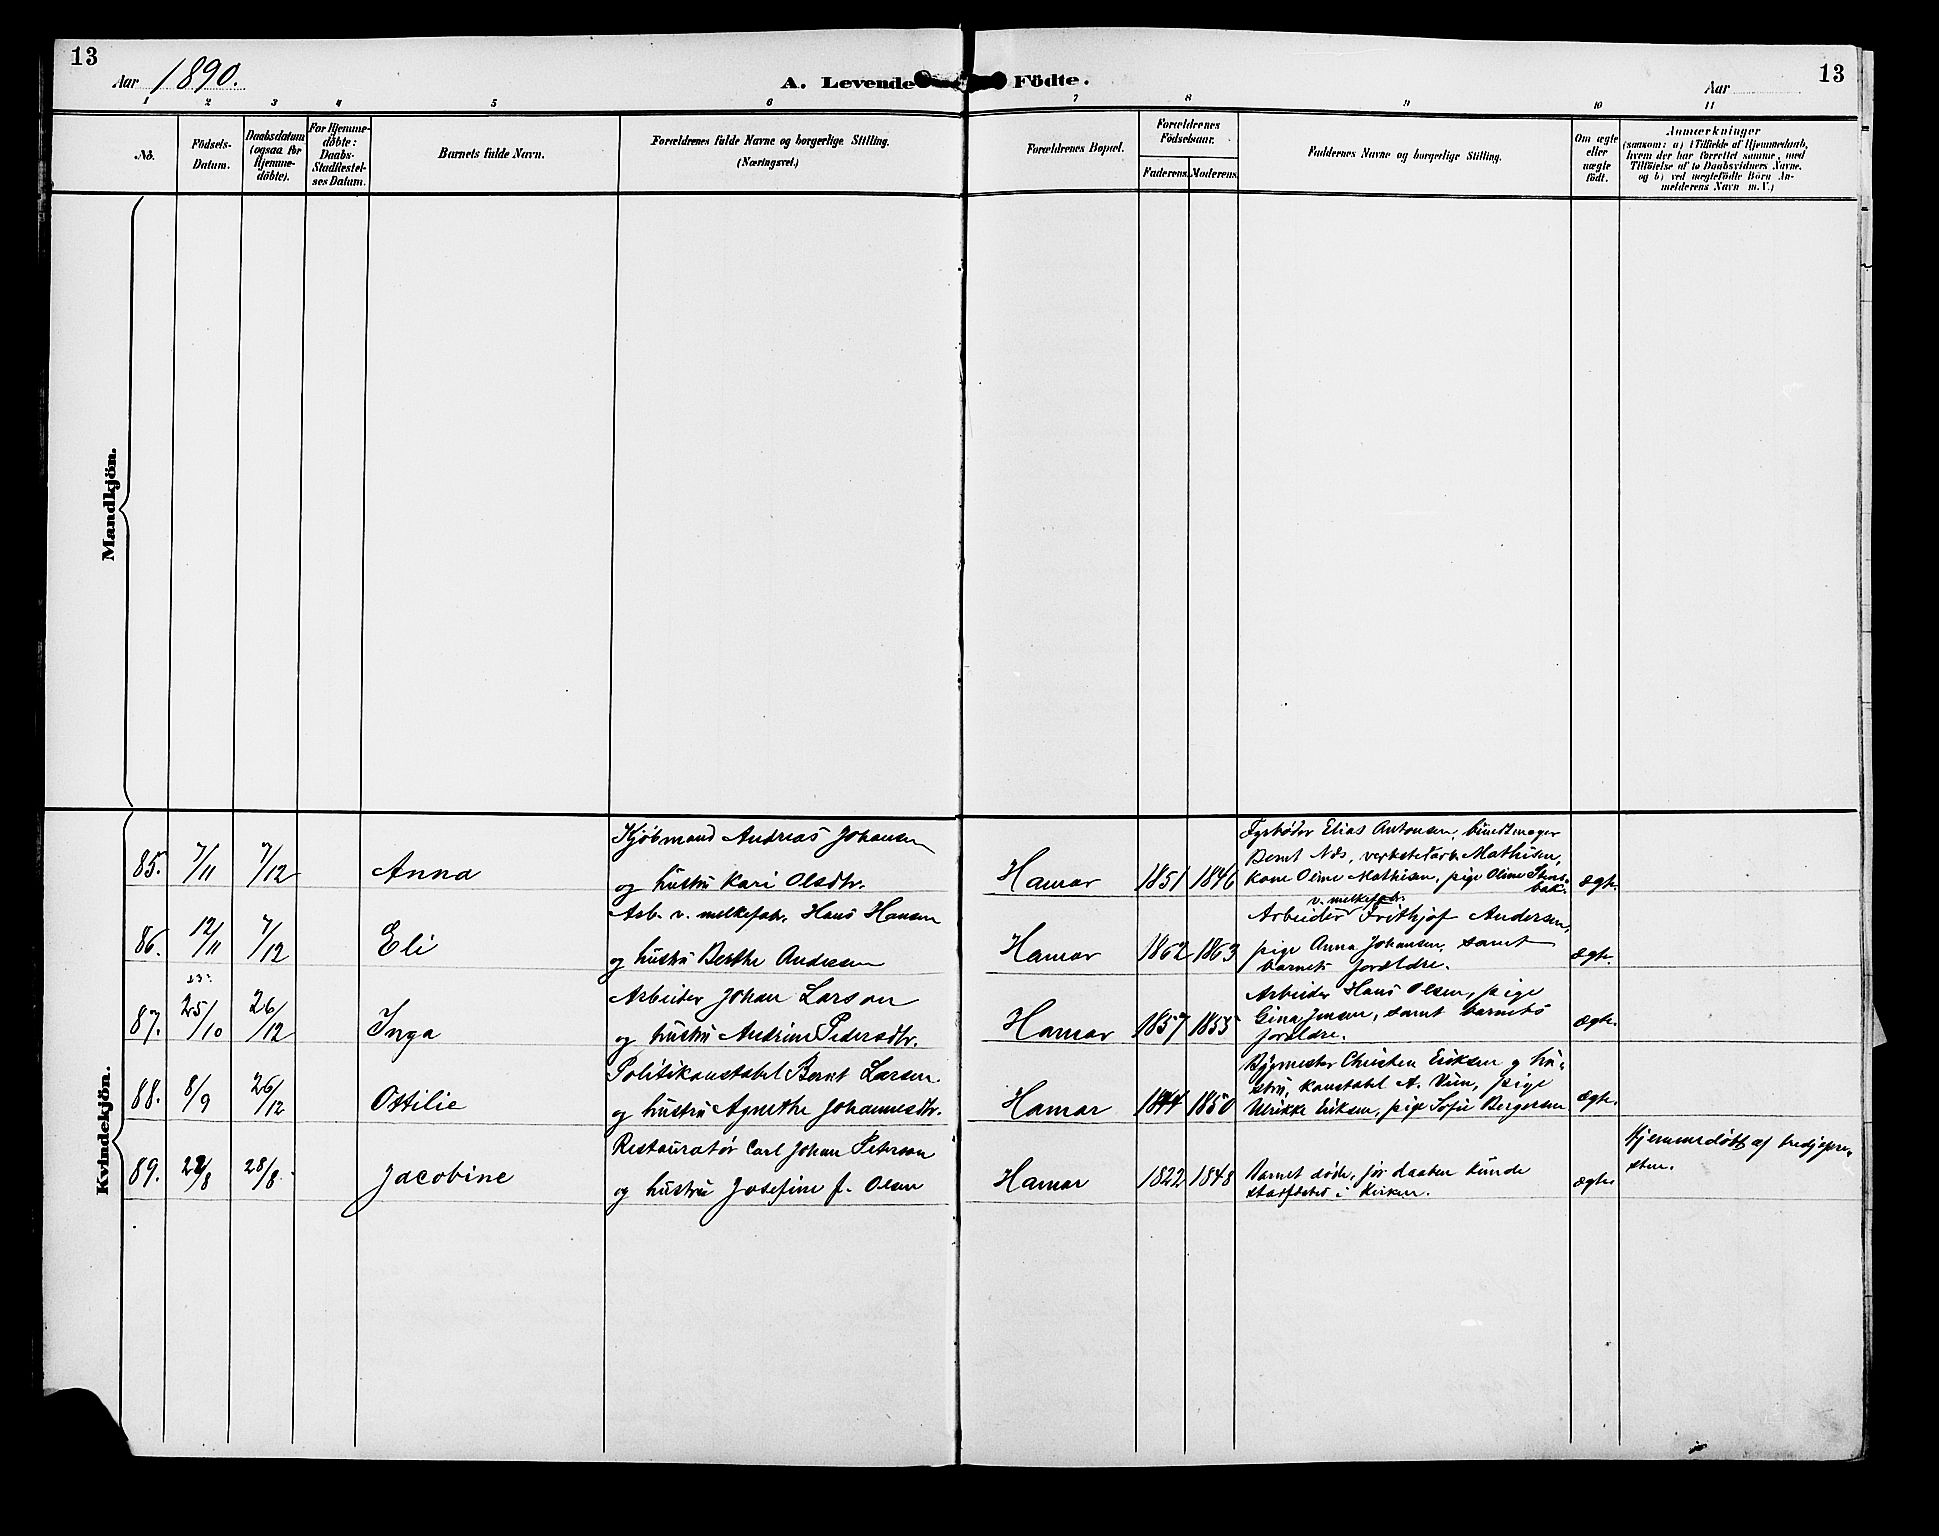 13
Aar 1890.
A. Levende Födte.
Aar
13
1 2 3 4 5 6 7 8 9 10 11
No.
Födsels-
Datum.
Daabsdatum
(ogsaa for
Hjemme-
döbte).
For Hjemme-
döbte:
Daabs-
Stadfæstel-
ses Datum.
Barnets fulde Navn.
Forældrenes fulde Navne og borgerlige Stilling.
(Næringsvei.)
Forældrenes Bopæl.
Forældrenes
Födselsaar.
Faderens.
Moderens.
Faddernes Navne og borgerlige Stilling.
Om ægte
eller
uægte
födt.
Anmærkninger
(saasom: a) i Tilfælde af Hjemmedaab,
hvem der har forrettet samme, med
Tilföielse af to Daabsvidners Navne,
og b) ved uægtefödte Börn An-
melderens Navn m. V.)
Mandkjön.
Kvindekjön.
85. 7/11 7/12 Anna
Kjöbmand Andreas Johansen
og hustru Kari Olsdtr.
Hamar 1851 1846
Fyrbøder Elias Antonsen, bundtmager
Bernt Næs, verkstedarb. Mathisen,
kone Oline Mathisen, pige Oline Stens-
bak.
ægte.
86. 12/11 7/12 Eli
Arb. v. melkefabr. Hans Hansen
og hustru Berthe Andersen
Hamar 1862 1863
v. melkefabr.
Arbeider Frithjof Andersen,
pige Anna Johansen, samt
barnets forældre.
ægte.
87. 25/10 26/12 Inga
Arbeider Johan Larson
og hustru Andrine Pedersdtr.
Hamar 1857 1855
Arbeider Hans Olsen, pige
Gina Jensen, samt barnets
forældre.
ægte.
88. 8/9 26/12 Ottilie
Politikonstabel Bernt Larsen
og hustru Agnethe Johannesdtr.
Hamar 1844 1850
Bygmester Christen Eriksen og hu-
stru, konstabel A. Vien, pige
Ulrikke Eriksen, pige Sofie Bergersen
ægte.
89. 28/8 28/8 Jacobine
Restauratør Carl Johan Peterson
og hustru Josefine f. Olsen
Hamar 1822 1848
Barnet døde, før daaben kunde
stadfæstes i Kirken.
ægte
Hjemmedöbt af tredjepre-
sten.